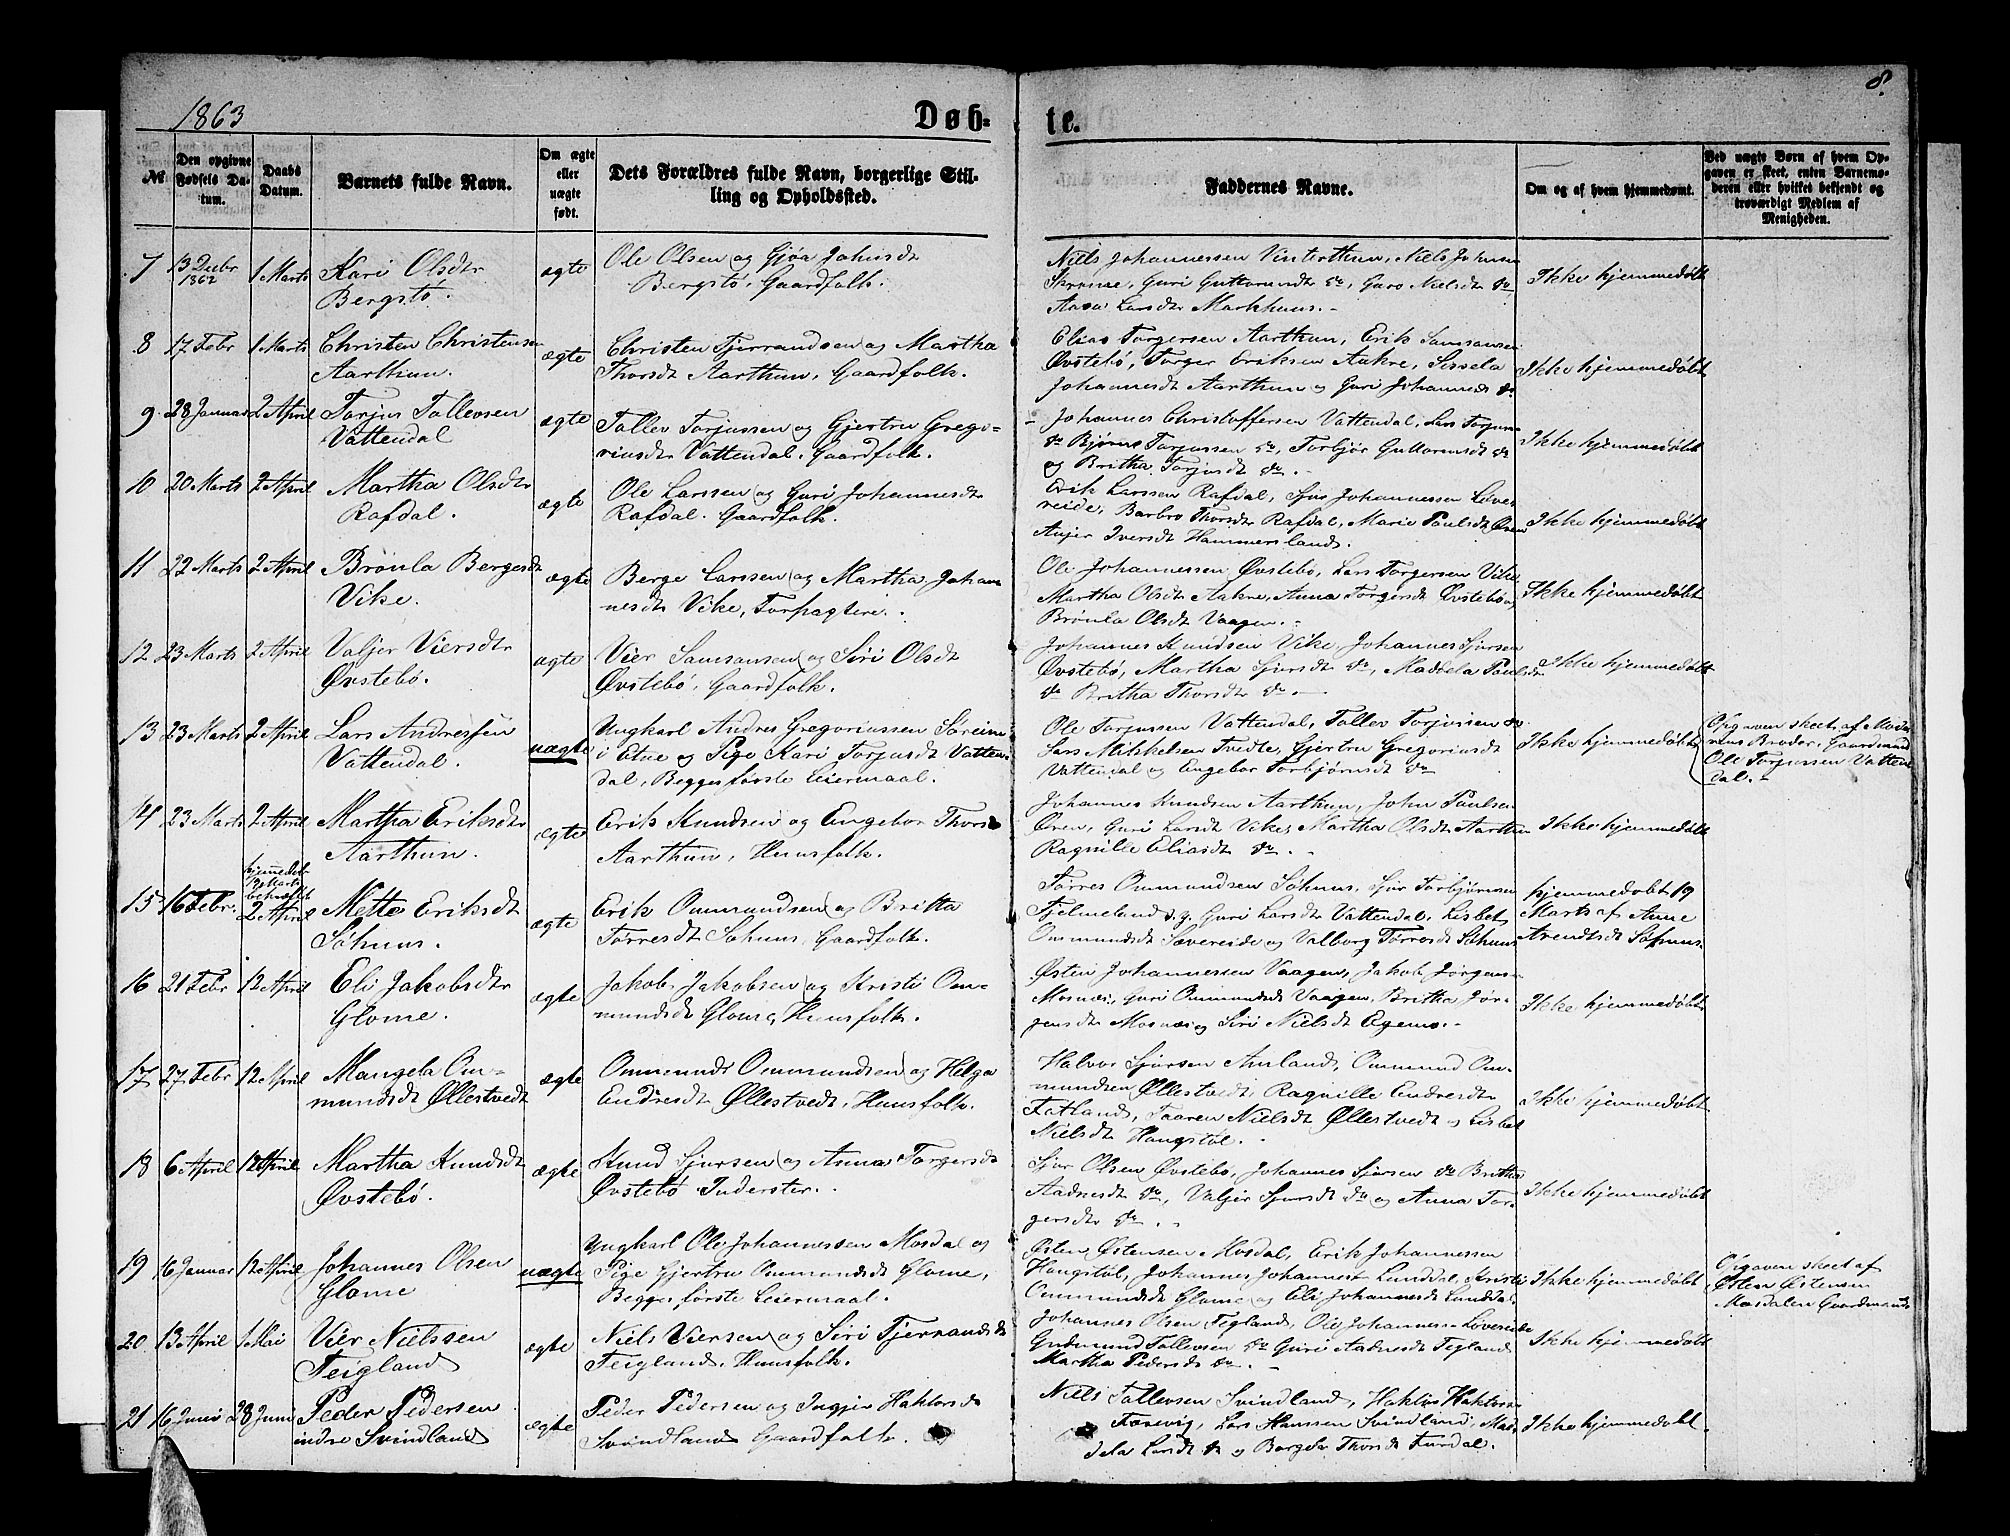 1863
Døb-
te.
8.
№
Den opgivne Fødsels Datum.
Daabs Datum.
Barnets fulde Navn.
Om ægte eller uægte født.
Dets Forældres fulde Navn, borgerlige Stilling og Opholdssted.
Faddernes Navne.
Om og af hvem hjemmedøbt.
Ved uægte Børn af hvem Opgaven er skeet, enten Barnemoderen eller hvilket bekjendt og troværdigt Medlem af Menigheden.
7 13 Decbr 1862 1 Marts Kari Olsdtr Bergstø. ægte Ole Olsen og Gjøa Johnsdt
Bergstø. Gaardfolk.
Niels Johannessen Vinterthun, Niels Johnsen
Guri Guttormsdt do, Guro Nielsdt do
Aasa Larsdt Markhuus.
Ikke hjemmedøbt
8 17 Febr 1 Marts Christen Christensen Aarthun. ægte Christen Tjerrandsen og Martha
Thorsdt Aarthun, Gaardfolk.
Elias Torgersen Aarthun, Erik Samsonsen
Øvstebø, Torger Eriksen Aakre, Sissela
Johannesdt Aarthun og Guri Johannesdt do.
Ikke hjemmedøbt
9 28 Januar 2 April Torjus Tollevsen Vattendal ægte Tollev Torjussen og Gjertru Grego-
riusdt Vattendal. Gaardfolk.
Johannes Christoffersen Vattendal, Lars Torjus-
do Bjørne Torjussen do, Torbjør Guttormsdt do
og Britha Torjusdt do.
Ikke hjemmedøbt
10 20 Marts 2 April Martha Olsdtr Rafdal. ægte Ole Larssen og Guri Johannesdt
Rafdal. Gaardfolk.
Erik Larssen Rafdal, Sjur Johannessen Løve-
reide, Barbro Thorsdt Rafdal, Marie Paulsdt Øren
Anjer Iversdt Hammersland.
Ikke hjemmedøbt
11 22 Marts 2 April Brønla Bergesdt Vike. ægte Berge Larssen og Martha Johan-
nesdt Vike, Forpagtere.
Ole Johannessen Øvstebø, Lars Torgersen Vike,
Martha Olsdt Aakre, Anna Torgersdt Øvstebø og
Brønla Olsdt Vaagen.
Ikke hjemmedøbt
12 23 Marts 2 April Valjer Viersdtr Øvstebø. ægte Vier Samsonsen og Siri Olsdt
Øvstebø, Gaardfolk.
Johannes Knudsen Vike, Johannes Sjursen
Øvstebø, Martha Sjursdt do, Maddela Paulsdt
do Britha Thorsdt do.
Ikke hjemmedøbt
13 23 Marts 2 April Lars Andressen Vattendal. uægte Ungkarl Andres Gregoriussen Søreim
i Etne og Pige Kari Torjusdt Vatten-
dal, Begges første Leiermaal.
Ole Torjussen Vattendal, Tollev Torjussen do
Lars Mikkelsen Tvedte, Gjertru Gregoriusdt
Vattendal og Engebor Torbjørnsdt do
Ikke hjemmedøbt
Opgaven skeet af Mode-
rens Broder, Gaardmand
Ole Torjussen Vatten-
dal.
14 23 Marts 2 April Martha Eriksdtr Aarthun. ægte Erik Knudsen og Engebor Thorsdt
Aarthun, Huusfolk.
Johannes Knudsen Aarthun, John Paulsen
Øren, Guri Larsdt Vike, Martha Olsdt Aarthun
Ragnille Eliasdt do.
Ikke hjemmedøbt
15 16 Febr. hjemmedøbt 19 Marts bekræftet 2 April Mette Eriksdt Søhuus. ægte Erik Ommundsen og Britta
Tørresdt Søhuus, Gaardfolk.
Tørres Ommundsen Søhuus, Sjur Torbjørnsen
Fjelmeland, Guri Larsdt Vattendal, Lisbet
Ommundsdt Sævereide og Valborg Tørresdt Søhuus
hjemmedøbt 19
Marts af Anne
Arendtsdt Søhuus.
16 21 Febr 12 April Eli Jakobsdtr Glome. ægte Jakob Jakobsen og Kristi Om-
mundsdt Glome, Huusfolk.
Østen Johannessen Vaagen, Jakob Jørgens-
Mosnæs, Guri Ommundsdt Vaagen, Britha Jør-
gensdt Mosnæs og Siri Nielsdt Egemo.
Ikke hjemmedøbt
17 27 Febr 12 April Mangela Om-
mundsdt Øllestvedt ægte Ommund Ommundsen og Helga
Endresdt Øllestvedt, Huusfolk.
Halvor Sjursen Amland, Ommund Om-
mundsen Øllestvedt, Ragnille Endresdt
Fatland, Taaren Nielsdt Øllestvedt og Lisbet
Nielsdt Haugstøl.
Ikke hjemmedøbt
18 6 April 12 April Martha Knudsdt Øvstebø. ægte Knud Sjursen og Anna Torgersdt
Øvstebø Inderster.
Sjur Olsen Øvstebø, Johannes Sjursen do Britha
Aadnesdt do, Valjer Sjursdt do og Anna Tor-
gersdt do.
Ikke hjemmedøbt
19 16 Januar 12 April Johannes Olsen Glome uægte Ungkarl Ole Johannessen Mosdal og
Pige Gjertru Ommundsdt Glome,
Begges første Leiermaal.
Østen Østensen Mosdal, Erik Johannessen
Haugstøl, Johannes Johannes- Lunddal, Kristi
Ommundsdt Glome og Eli Johannesdt Lunddal.
Ikke hjemmedøbt
Opgaven skeet af
Østen Østensen
Mosdalen Gaardmand
20 13 April 1 Mai Vier Nielssen Teigland ægte Niels Viersen og Siri Tjerrandsdt
Teigland. Huusfolk.
Johannes Olsen Tegland, Ole Johannes- Løvereide
Gudmund Tollevsen do Guri Aadnesdt Tegland
Martha Pedersdt do.
Ikke hjemmedøbt
21 16 Juni 28 Juni Peder Pedersen indre Svindland ægte Peder Pedersen og Ingjer Haktorsdt
Svindland Gaardfolk.
Niels Tollevsen Svindland, Haktor Haktors-
Farevig, Lars Hanssen Svindland, Mad-
dela Larsdt do og Borgele Thorsdt Furdal.
Ikke hjemmedøbt.